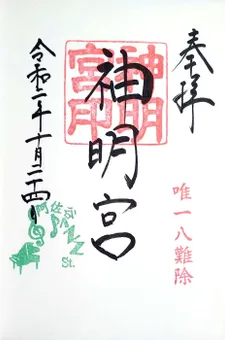 奉拝
唯一八難除
神明宮
神明宮印
令和二年十月二十四日
阿佐谷
JAZZ
St.